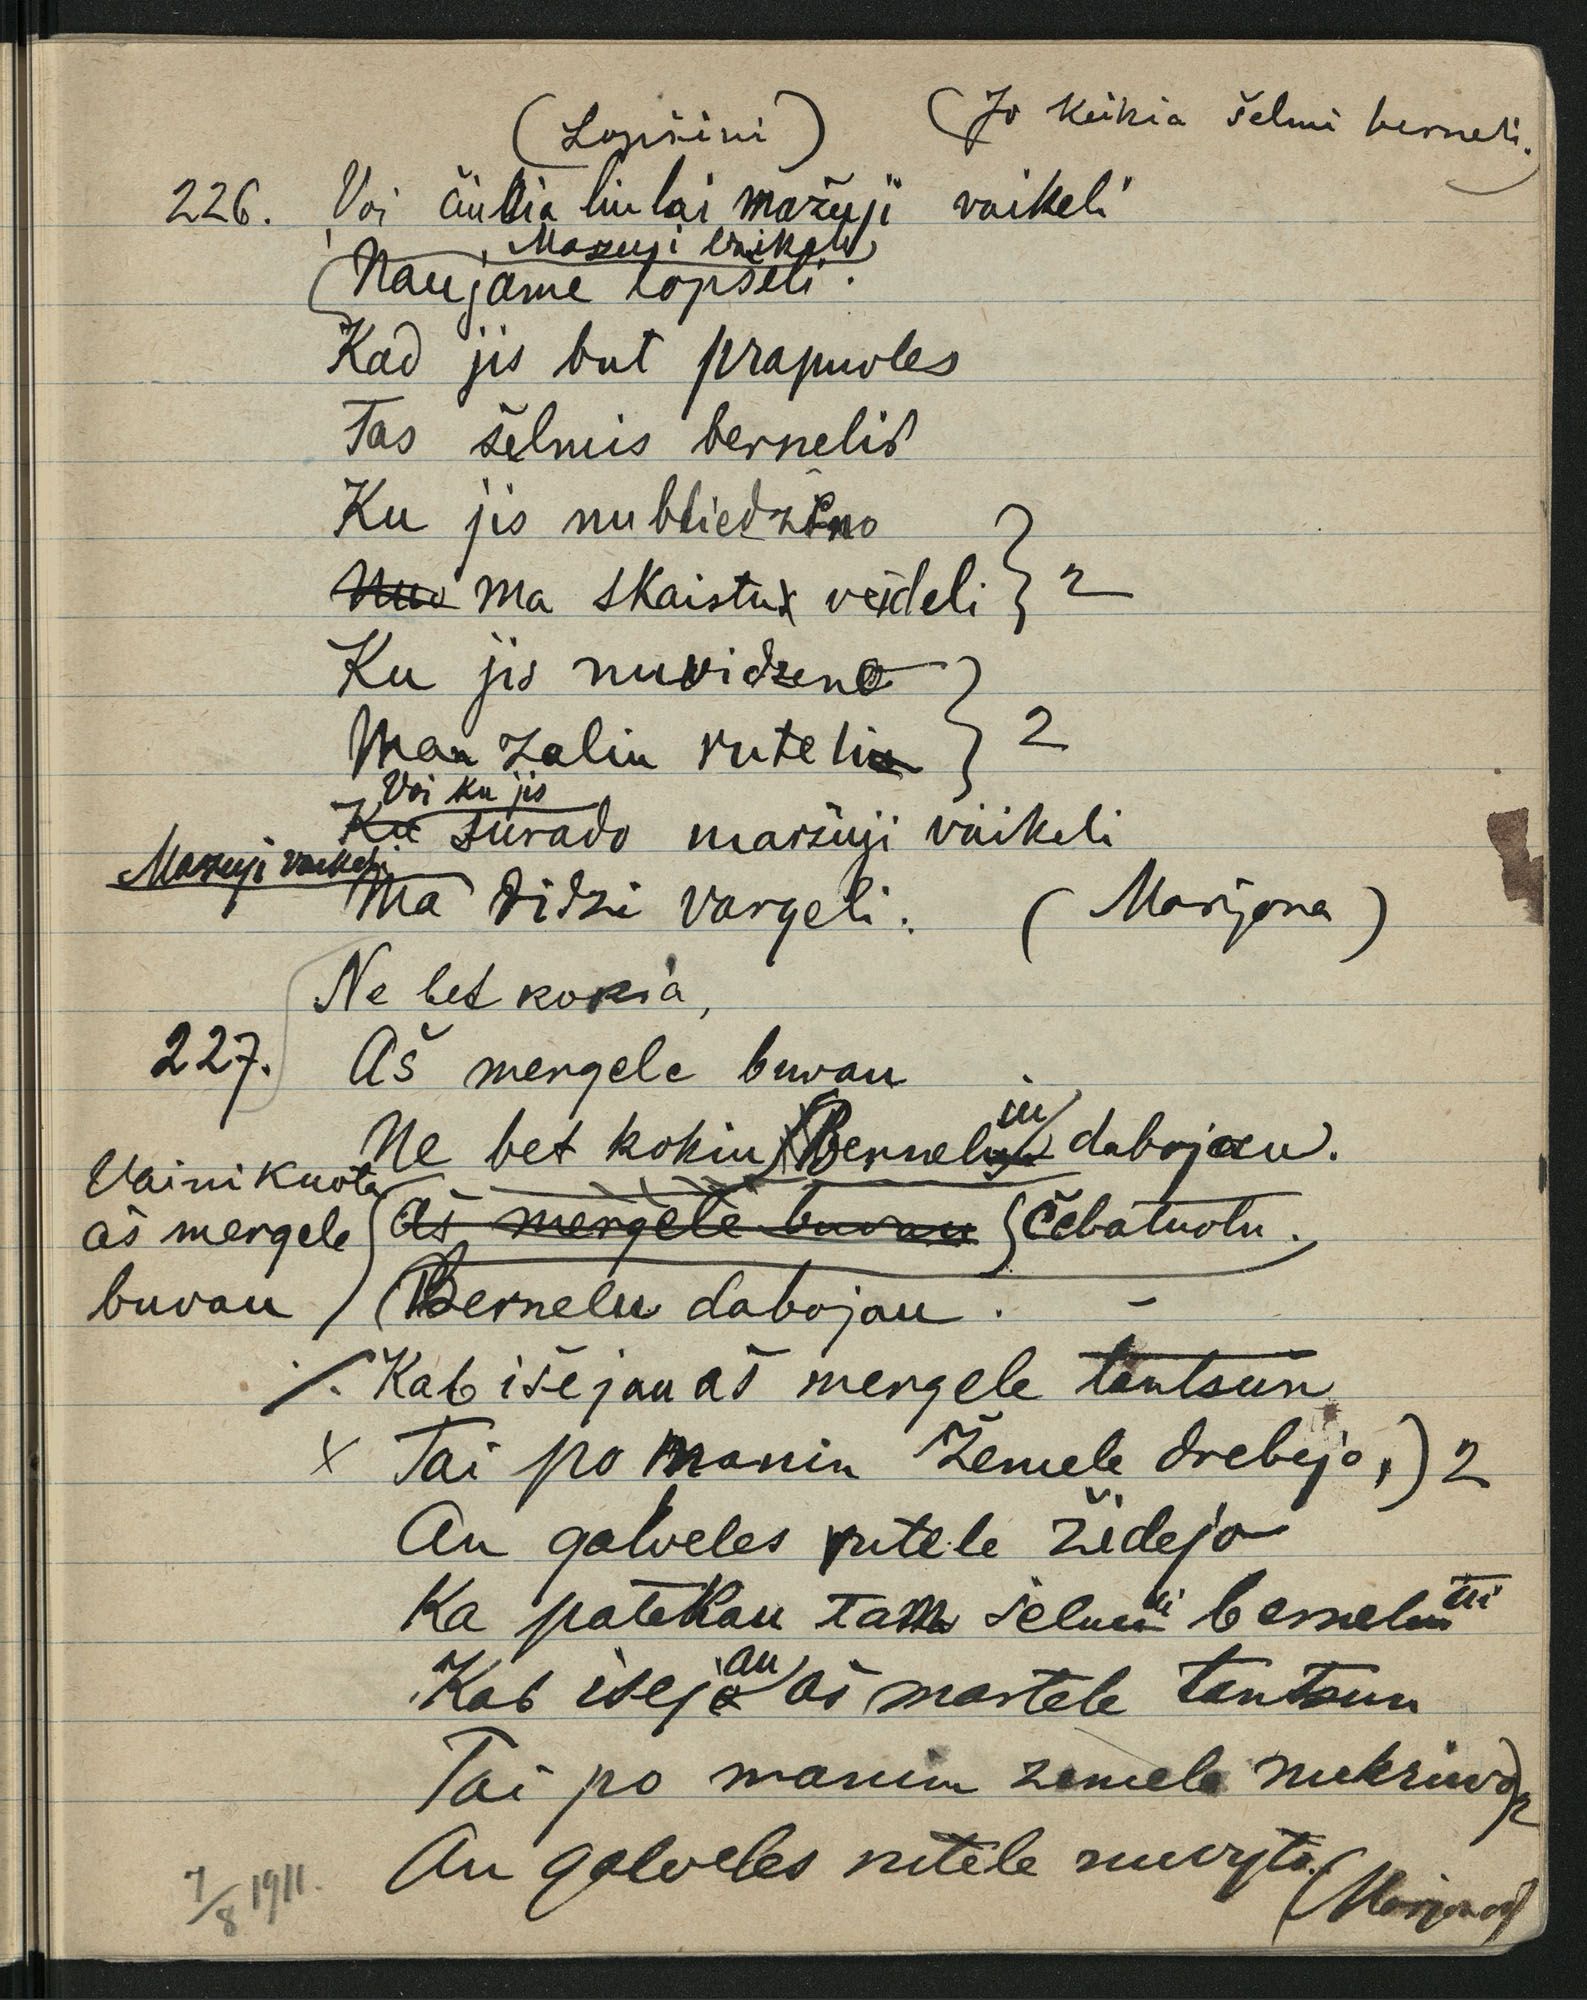 (Lopšini) (Jo keikia šelmi berneli.)
226. Voi čiučia liulai mažuji vaikeli
Mazuji vaikeli
Naujame lopšeli.
Kad jis but prapuoles
Tas šelmis bernelis
Ku jis nubliedzino
Nuo ma skaistu veideli } 2
Ku jis nuvidzeno
Man zaliu ruteliu } 2
Voi ku jis
Ku surado mažuji vaikeli
Mazuji vaikeli
Ma didzi vargeli. (Marijona)
Ne bet kokia,
227. Aš mergele buvau
Ne bet kokiu Berneliu dabojau.
Vainikuota
aš mergele
buvau
aš mergele buvau čebatuotu.
Bernelu dabojau.
Kab išejau aš mergele tantsun
x Tai po manin Žemele drebejo,) 2
An galveles rutele židejo
Ka patekau tam šelmi berneliui
Kab isejau aš martele tantsun
Tai po manim zemele nukriuvo) 2
An galveles rutele nuvyto. (Marijona)
7/8 1911.